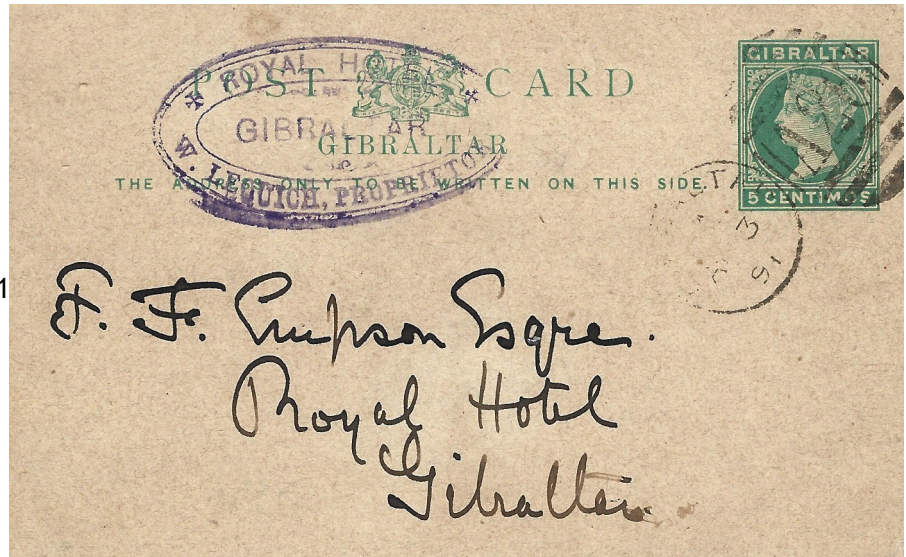 POST CARD
GIBRALTAR
THE ADDRESS ONLY TO BE WRITTEN ON THIS SIDE.
ROYAL HOTEL
GIBRALTAR
W. PROPRIETOR
GIBRALTAR
5 CENTIMOS
1
F. F. Empson Esqre.
Royal Hotel
Gibraltar